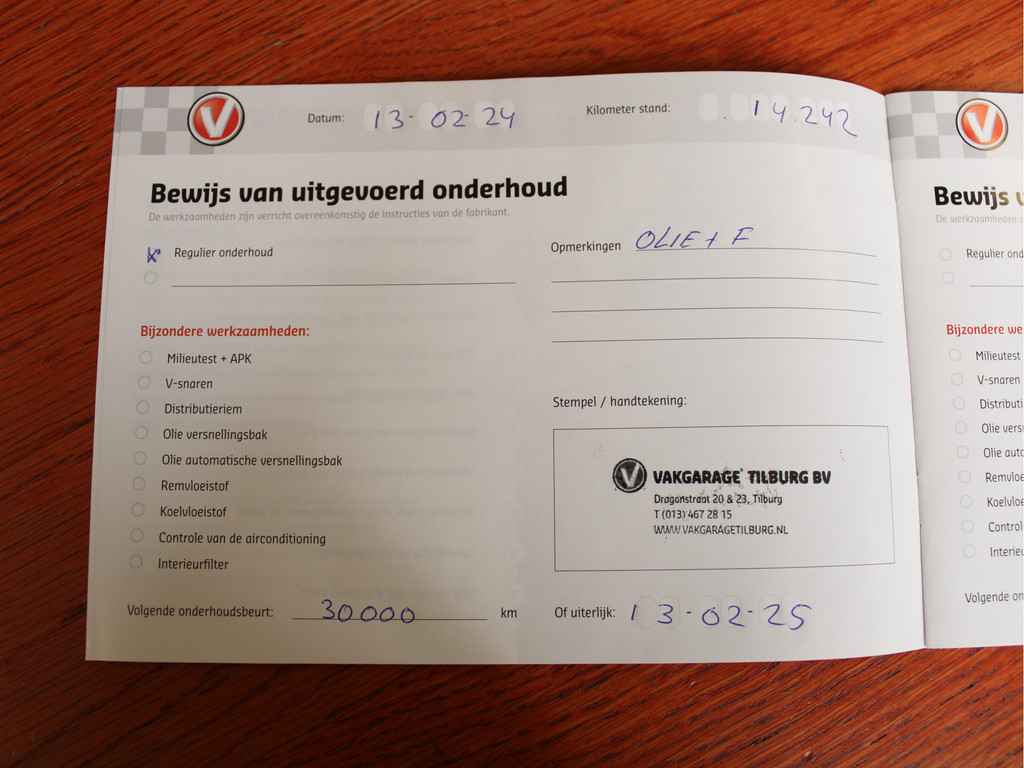 V
Datum: 13-02-24
Kilometer stand: 14.242
Bewijs van uitgevoerd onderhoud
De werkzaamheden zijn verricht overeenkomstig de instructies van de fabrikant.
Regulier onderhoud
Opmerkingen OLIE + F
Bijzondere werkzaamheden:
Milieutest + APK
V-snaren
Distributieriem
Olie versnellingsbak
Olie automatische versnellingsbak
Remvloeistof
Koelvloeistof
Controle van de airconditioning
Interieurfilter
Stempel / handtekening:
V VAKGARAGE TILBURG BV
Draganstraat 20 & 23, Tilburg
T (013) 467 28 15
WWW.VAKGARAGETILBURG.NL
Volgende onderhoudsbeurt: 30000 km
Of uiterlijk: 13-02-25
V
Bewijs v
De werkzaamheden z
Regulier ond
Bijzondere we
Milieutest
V-snaren
Distributi
Olie vers
Olie auto
Remvloe
Koelvloe
Control
Interieu
Volgende on